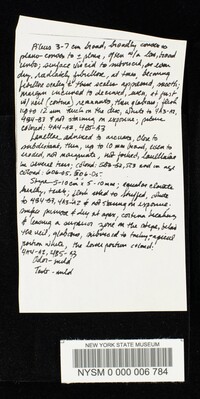 Pileus 3-7 cm broad, broadly convex to
plano-convex to ± plane, often w/ a low, broad
umbo; surface viscid to subviscid, or soon
dry, radially fibrillose, at times becoming
fibrillose scaly w/ these scales appressed, smooth;
margin incurved to decurved, even, at first
w/ veil (cortina) remnants, then glabrous; flesh
up to 12 mm thick in the disc, white to
4B4-B3 & not staining on exposure; pileus
colored: 4A4-A3, 4B5-A3
Lamellae adnexed to arcuate, close to
subdistant, thin, up to 10 mm broad, even to
eroded, not marginate, not forked, lamellulae
in several tiers; colored: 5B3-B2, 5C3 and in age
colored: 6D6-D5.
Stipe 5-10 cm x 5-10 mm; equal or clavate
fleshy, terete, flesh solid to stuffed, white
to & not staining on exposure.
surface dry at apex, cortina breaking
& leaving a superior zone on the stipe, below
the veil, glabrous, apical
portion white, the lower portion colored:
4B4-A3, 4B5-A3
Odor- mild
Taste- mild
NEW YORK STATE MUSEUM
NYSM 0 000 006 784